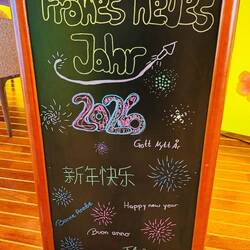 Frohes neues
Jahr
2026
Gott Nytt År
新年快乐
Bonne Année
Happy new year
Buon anno